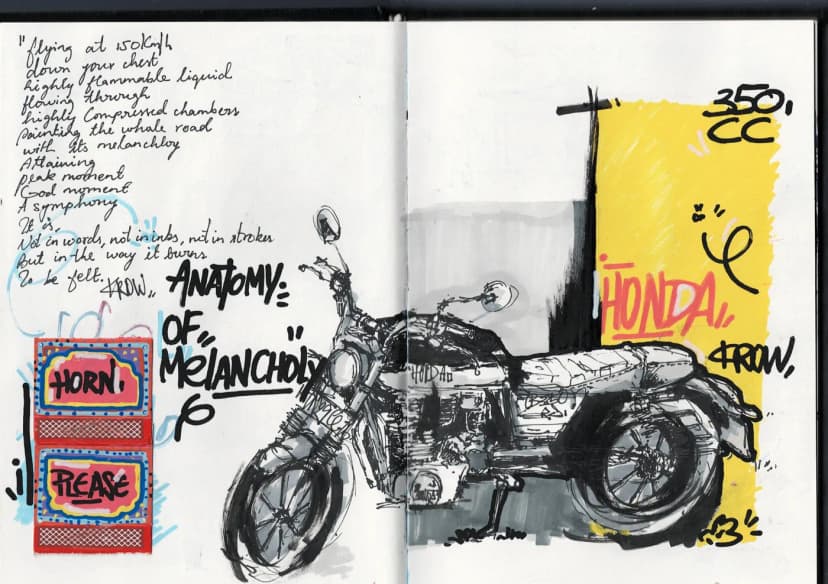 "flying at 150km/h
down your chest
highly flammable liquid
flowing through
highly compressed chambers
painting the whole road
with its melanchloy
Attaining
Peak moment
God moment
A symphony
It is,
Not in words, not in inks, not in strokes
But in the way it burns
To be felt.
KROW,,
ANATOMY:
OF,,
MELANCHOLY
HORN.
PLEASE
350.
CC
HONDA,,
KROW,
HONDA